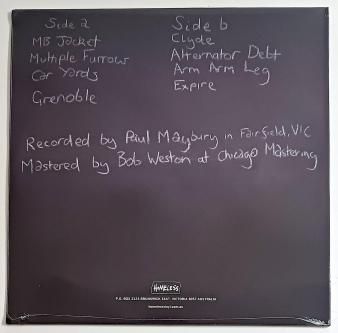 Side a
MB Jacket
Multiple Furrows
Car Yards
Grenoble
Side b
Clyde
Alternator Debt
Arm Arm Leg
Expire
Recorded by Paul Maybury in Fairfield, VIC
Mastered by Bob Weston at Chicago Mastering
HOMELESS
P.O. BOX 2125 BRUNSWICK EAST, VICTORIA 3057 AUSTRALIA